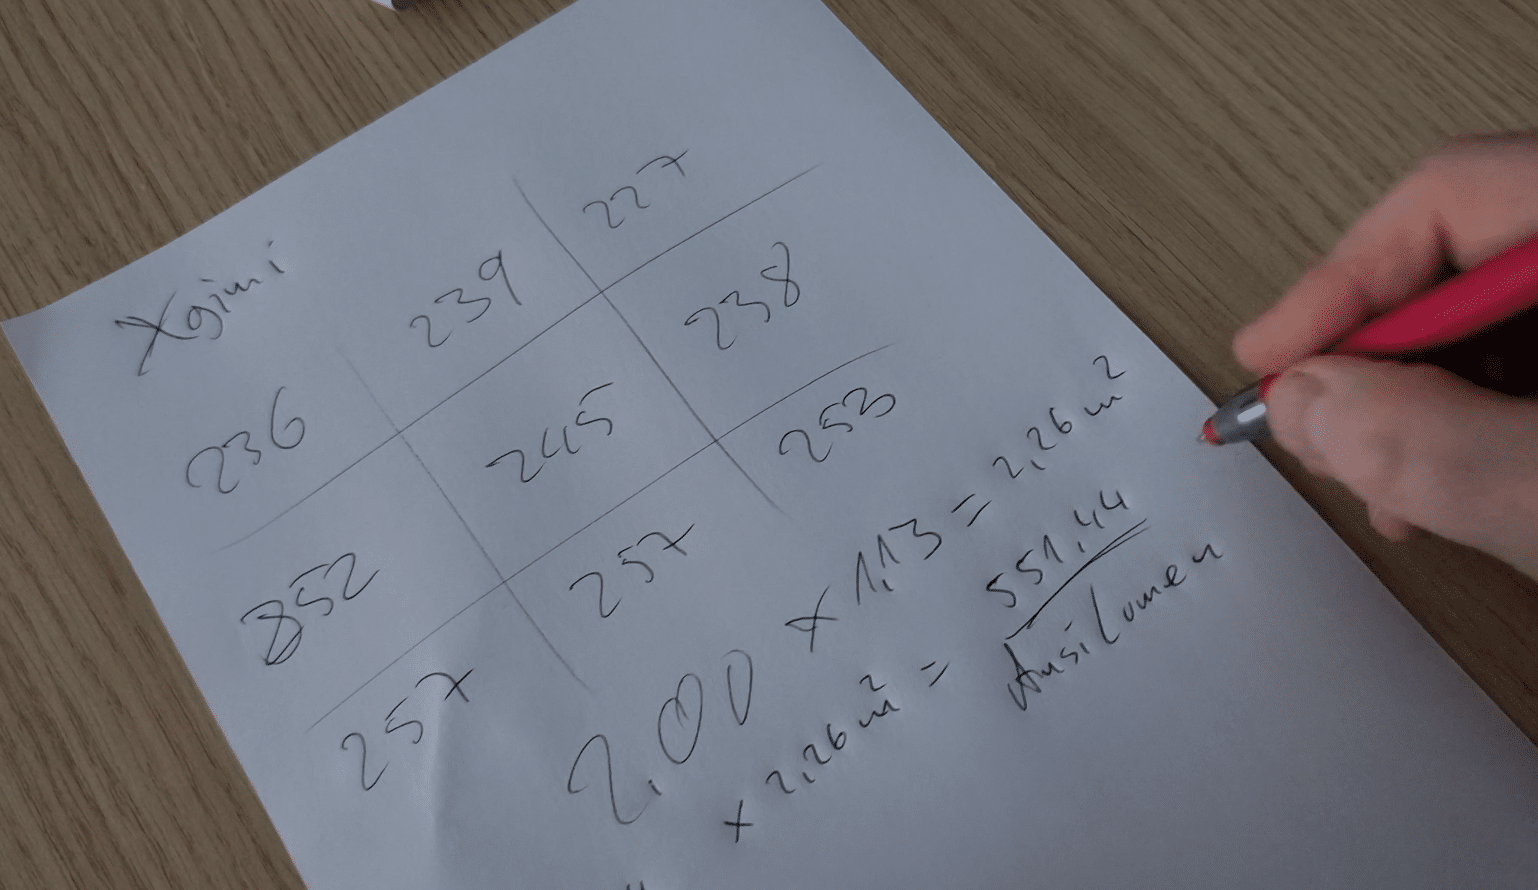 Xgimi
236 239 227
252 245 238
257 257 253
2,00 x 1,13 = 2,26 m²
x 2,26 m² = 551,44
Ansilumen